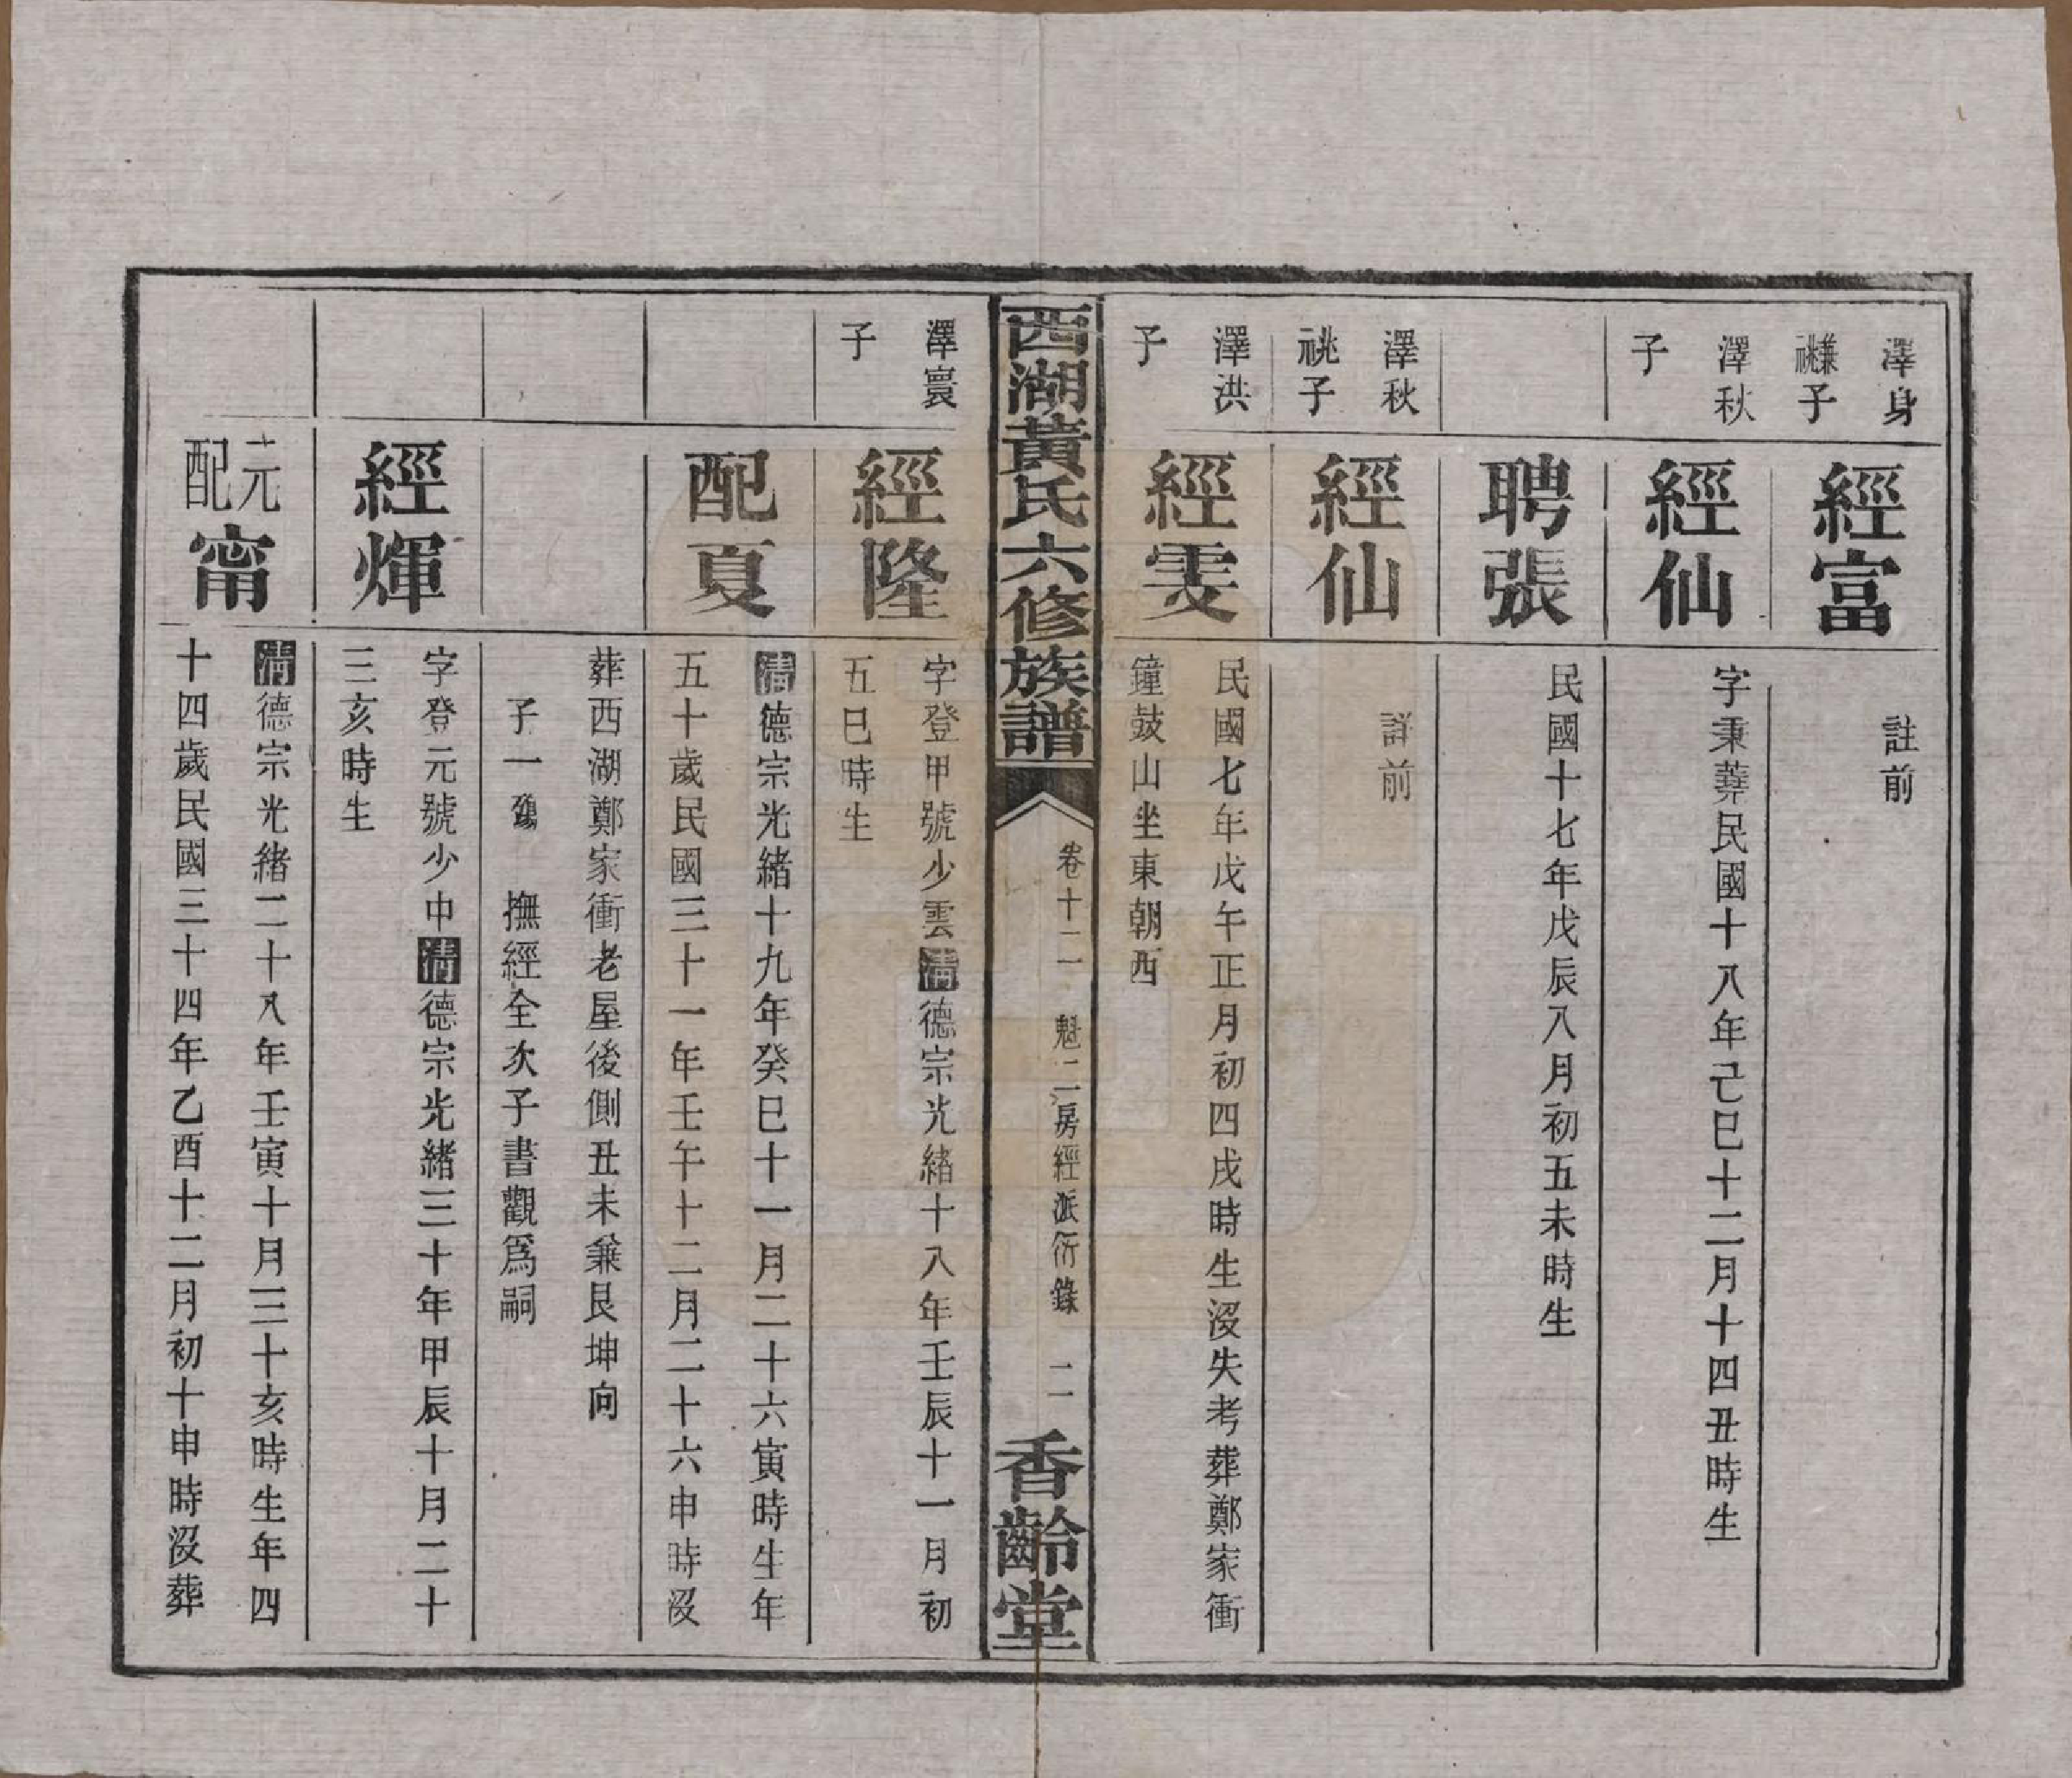 澤身
兼祧子
經富
註前
澤秋
子
經仙
字秉莾民國十八年己巳十二月十四丑時生
聘張
民國十七年戊辰八月初五未時生
澤秋
祧子
經仙
詳前
澤洪
子
經雯
民國七年戊午正月初四戌時生沒失考葬鄭家衝
鐘鼓山坐東朝西
西湖黃氏六修族譜
卷十二 魁二房經派衍錄 二
香齡堂
澤寰
子
經隆
字登甲號少雲清德宗光緒十八年壬辰十一月初
五巳時生
配夏
清德宗光緒十九年癸巳十一月二十六寅時生年
五十歲民國三十一年壬午十二月二十六申時沒
葬西湖鄭家衝老屋後側丑未兼艮坤向
子一 殤 撫經全次子書觀爲嗣
經煇
字登元號少中清德宗光緒三十年甲辰十月二十
三亥時生
元配甯
清德宗光緒二十八年壬寅十月三十亥時生年四
十四歲民國三十四年乙酉十二月初十申時沒葬